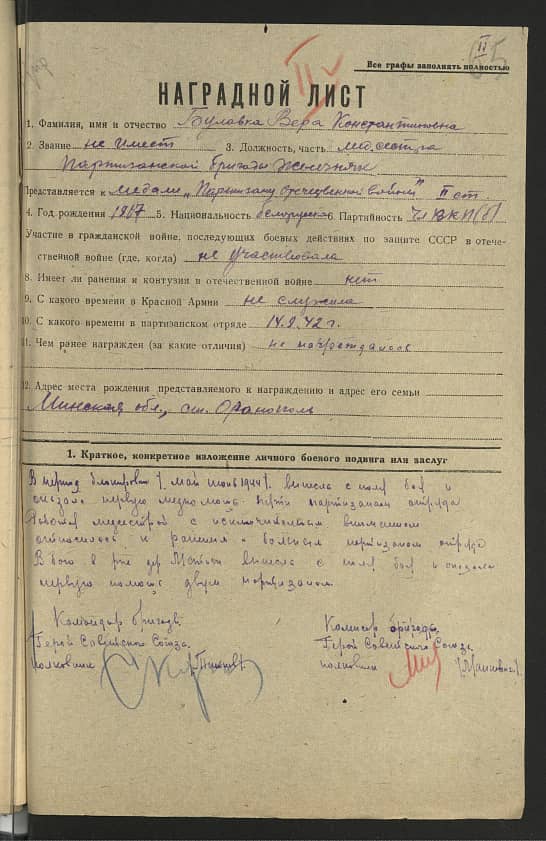 II
Все графы заполнять полностью
НАГРАДНОЙ ЛИСТ
1. Фамилия, имя и отчество Булавка Вера Константиновна
2. Звание не имеет 3. Должность, часть медсестра
партизанской бригады Железняк
Представляется к медали „Партизану отечественной войны" II ст.
4. Год рождения 1917 5. Национальность белорусска 6. Партийность чл ВКП(б)
Участие в гражданской войне, последующих боевых действиях по защите СССР и отече-
ственной войне (где, когда) не участвовала
8. Имеет ли ранения и контузии в отечественной войне нет
9. С какого времени в Красной Армии не служила
10. С какого времени в партизанском отряде 14.9.42 г.
11. Чем ранее награжден (за какие отличия) не награждалась
12. Адрес места рождения представляемого к награждению и адрес его семьи
Минская обл., ст.
1. Краткое, конкретное изложение личного боевого подвига или заслуг
В период блокировки / май июнь 1944 г. вынесла с поля боя и
оказала первую медпомощь партизанам отряда
Работая медсестрой с исключительным вниманием
относилась к раненым и больным партизанам отряда
В бою в р-не дер. вынесла с поля боя и оказала
первую помощь двум партизанам
Командир бригады
Герой Советского Союза
полковник
Комисар бригады
Герой Советского Союза
полковник